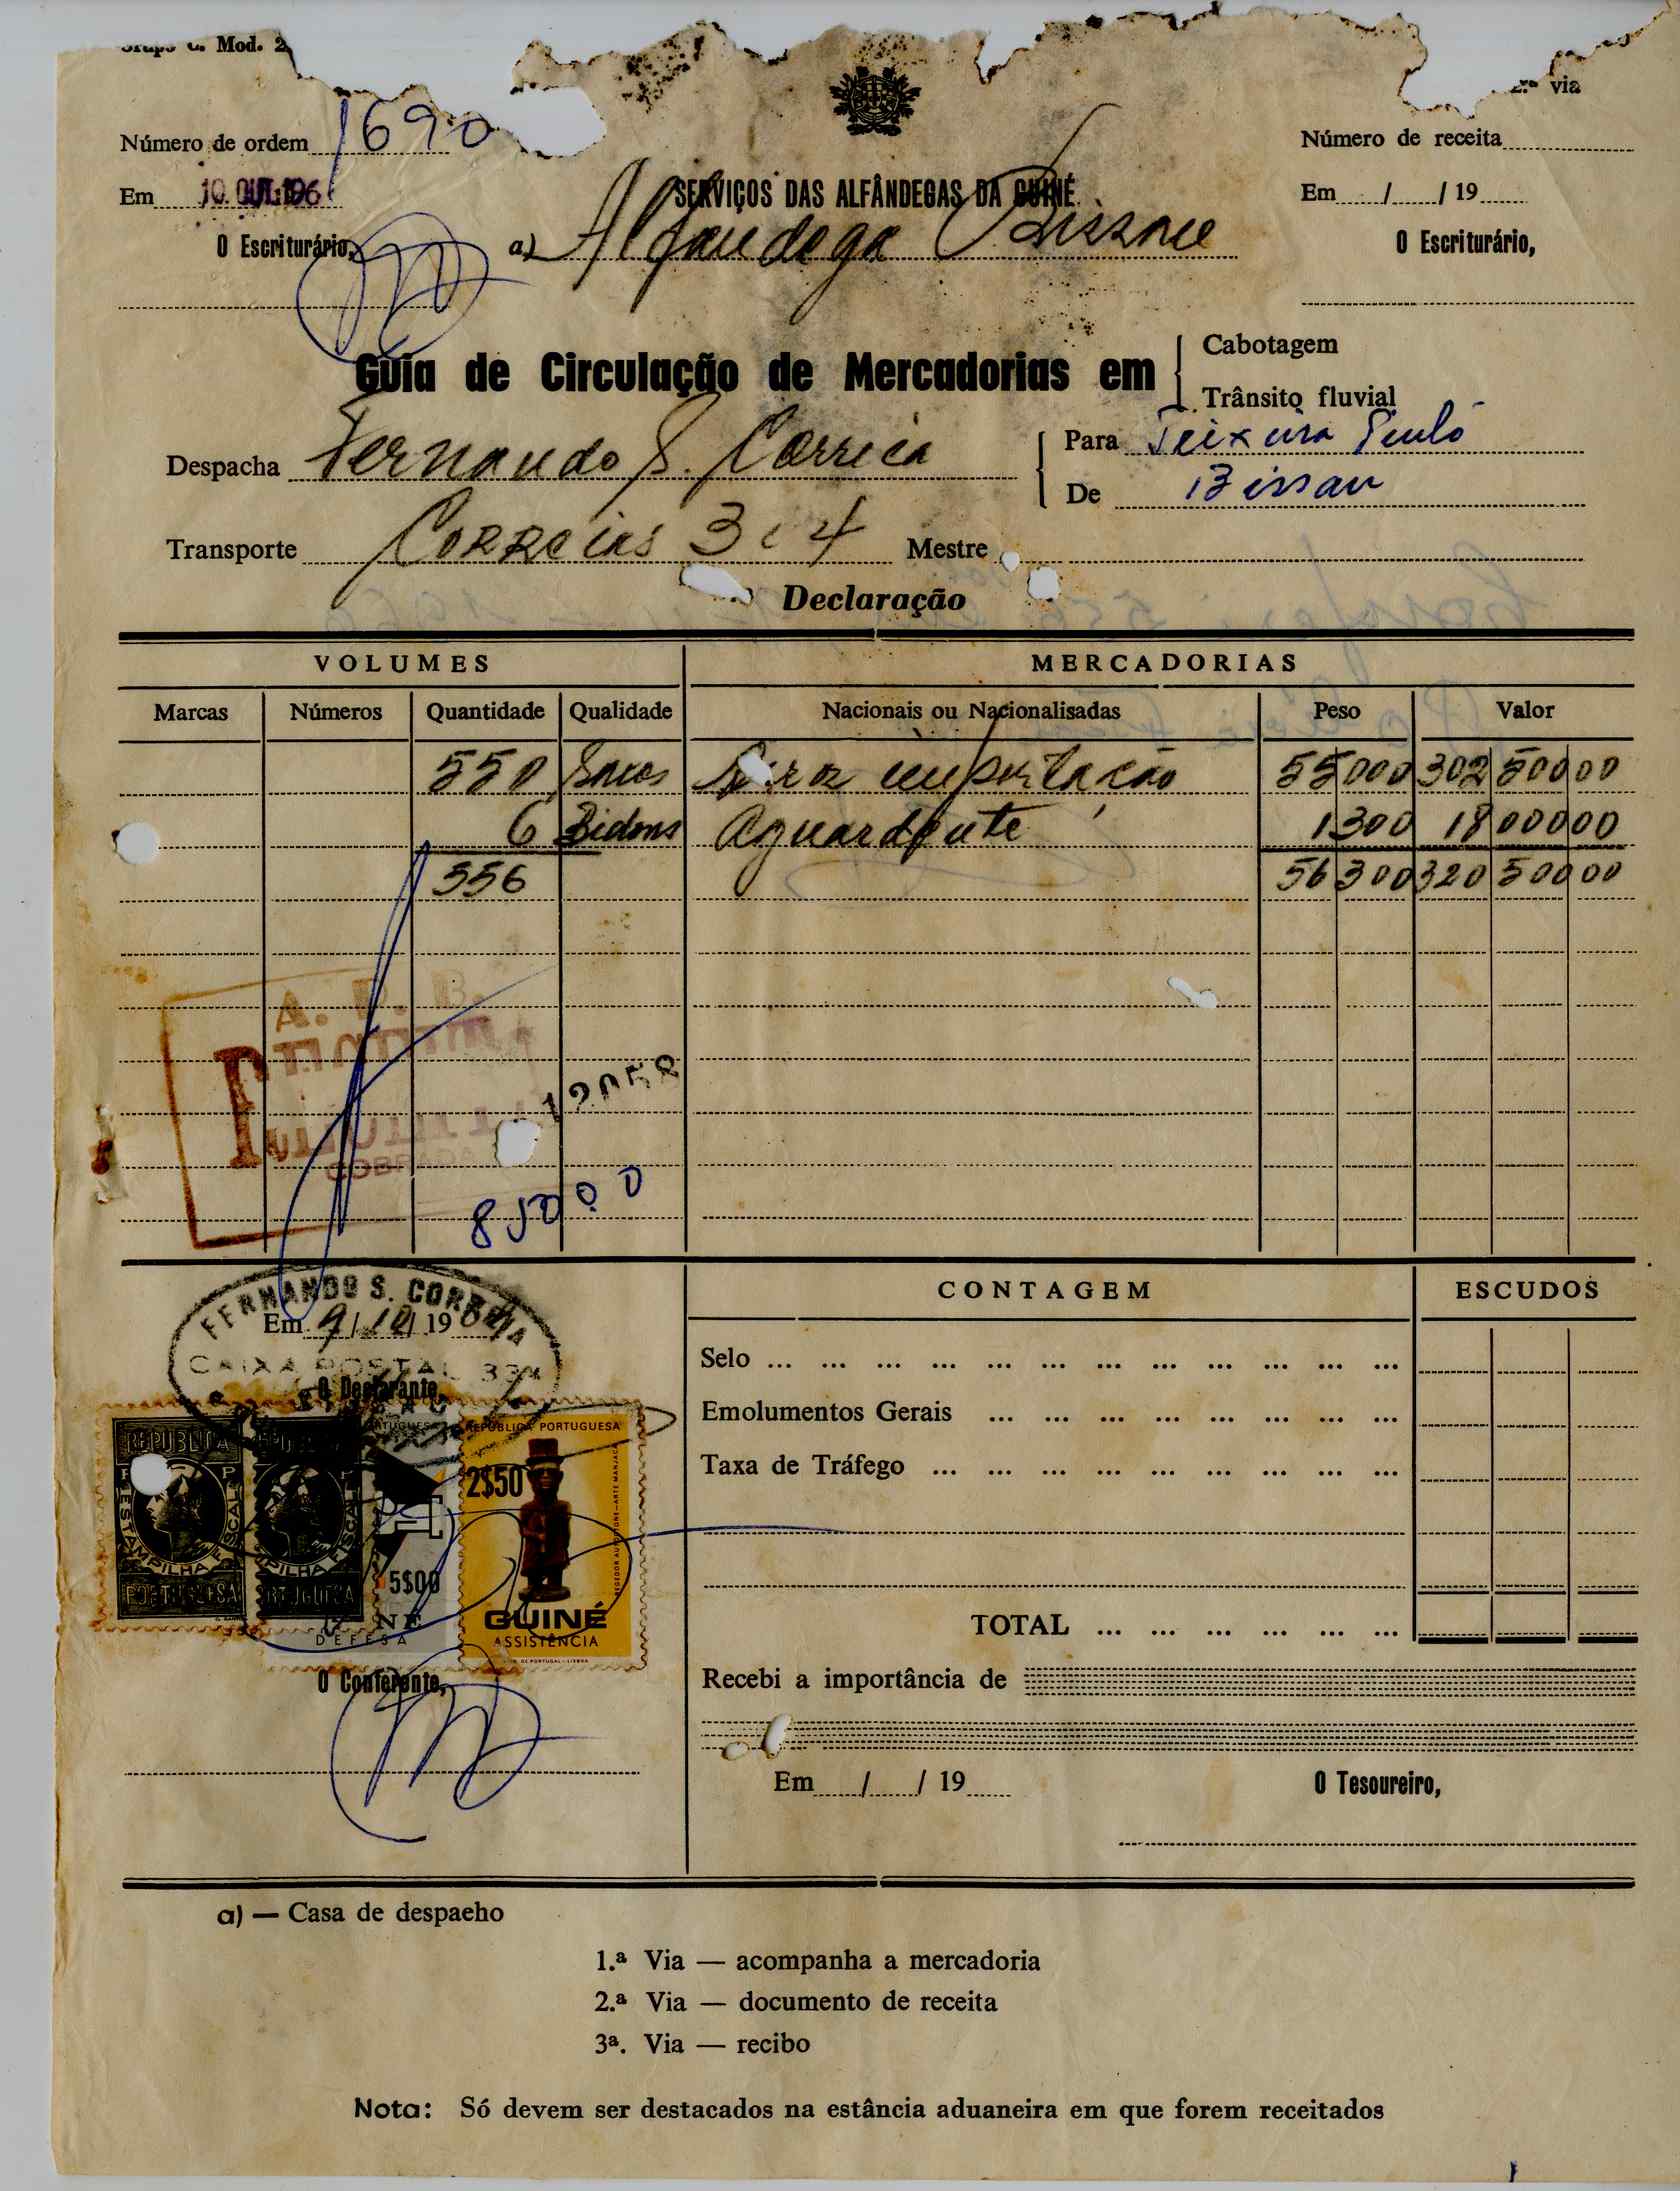 Mod. 2
via
Número de ordem 1690
Número de receita
Em 10. OUT. 196
Em / / 19
SERVIÇOS DAS ALFÂNDEGAS DA GUINÉ
O Escriturário,
a) Alfandega Bissau
O Escriturário,
Guia de Circulação de Mercadorias em
Cabotagem
Trânsito fluvial
Despacha Fernando S. Correia
Para Teixeira Pinto
De Bissau
Transporte Correias 3 e 4 Mestre
Declaração
VOLUMES MERCADORIAS
Marcas Números Quantidade Qualidade Nacionais ou Nacionalisadas Peso Valor
550 Sacos Arroz importação 55000 302 500 00
6 Bidons Aguardente 1300 18 000 00
556 56 300 320 500 00
A. P. B.
12058
850 00
FERNANDO S. CORREIA
Em 9/10/19
CAIXA POSTAL
O Declarante,
CONTAGEM ESCUDOS
Selo ... ... ... ... ... ... ... ... ... ... ... ...
Emolumentos Gerais ... ... ... ... ... ... ... ...
Taxa de Tráfego ... ... ... ... ... ... ... ... ...
REPÚBLICA
ESTAMPILHA FISCAL
PORTUGUESA
5$00
DEFESA
REPÚBLICA PORTUGUESA
2$50
GUINÉ
ASSISTÊNCIA
TOTAL ... ... ... ... ... ...
O Conferente,
Recebi a importância de
Em / / 19
O Tesoureiro,
a) — Casa de despaeho
1.ª Via — acompanha a mercadoria
2.ª Via — documento de receita
3ª. Via — recibo
Nota: Só devem ser destacados na estância aduaneira em que forem receitados